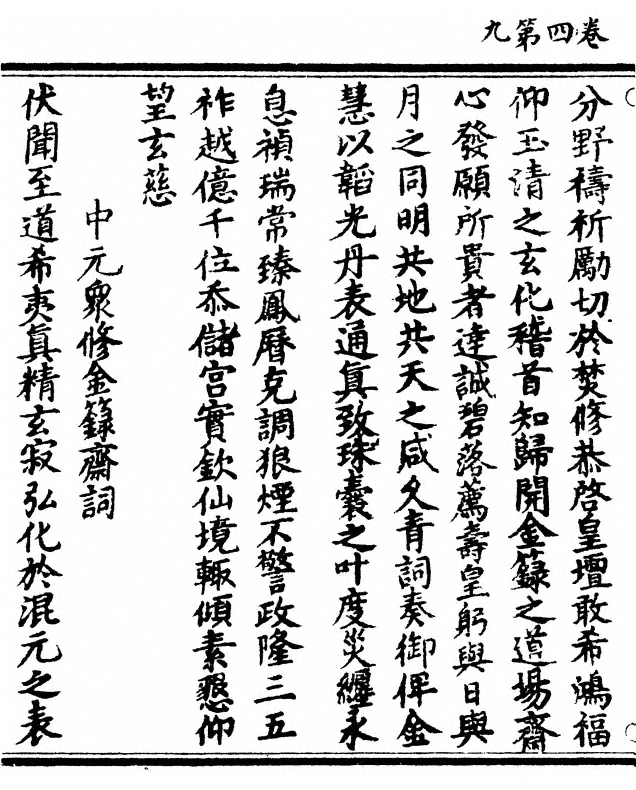 九第四卷
分野禱祈勵切於焚修恭啓皇壇敢希鴻福
仰玉清之玄化稽首知歸開金籙之道場齋
心發願所貴者達誠碧落薦壽皇躬與日與
月之同明共地共天之咸久青詞奏御俾金
慧以韜光丹表通真致珠囊之叶度災纏永
息禎瑞常臻鳳曆克調狼煙不警政隆三五
祚越億千位忝儲宮實欽仙境輙傾素懇仰
望玄慈
中元衆修金籙齋詞
伏聞至道希夷真精玄寂弘化於混元之表